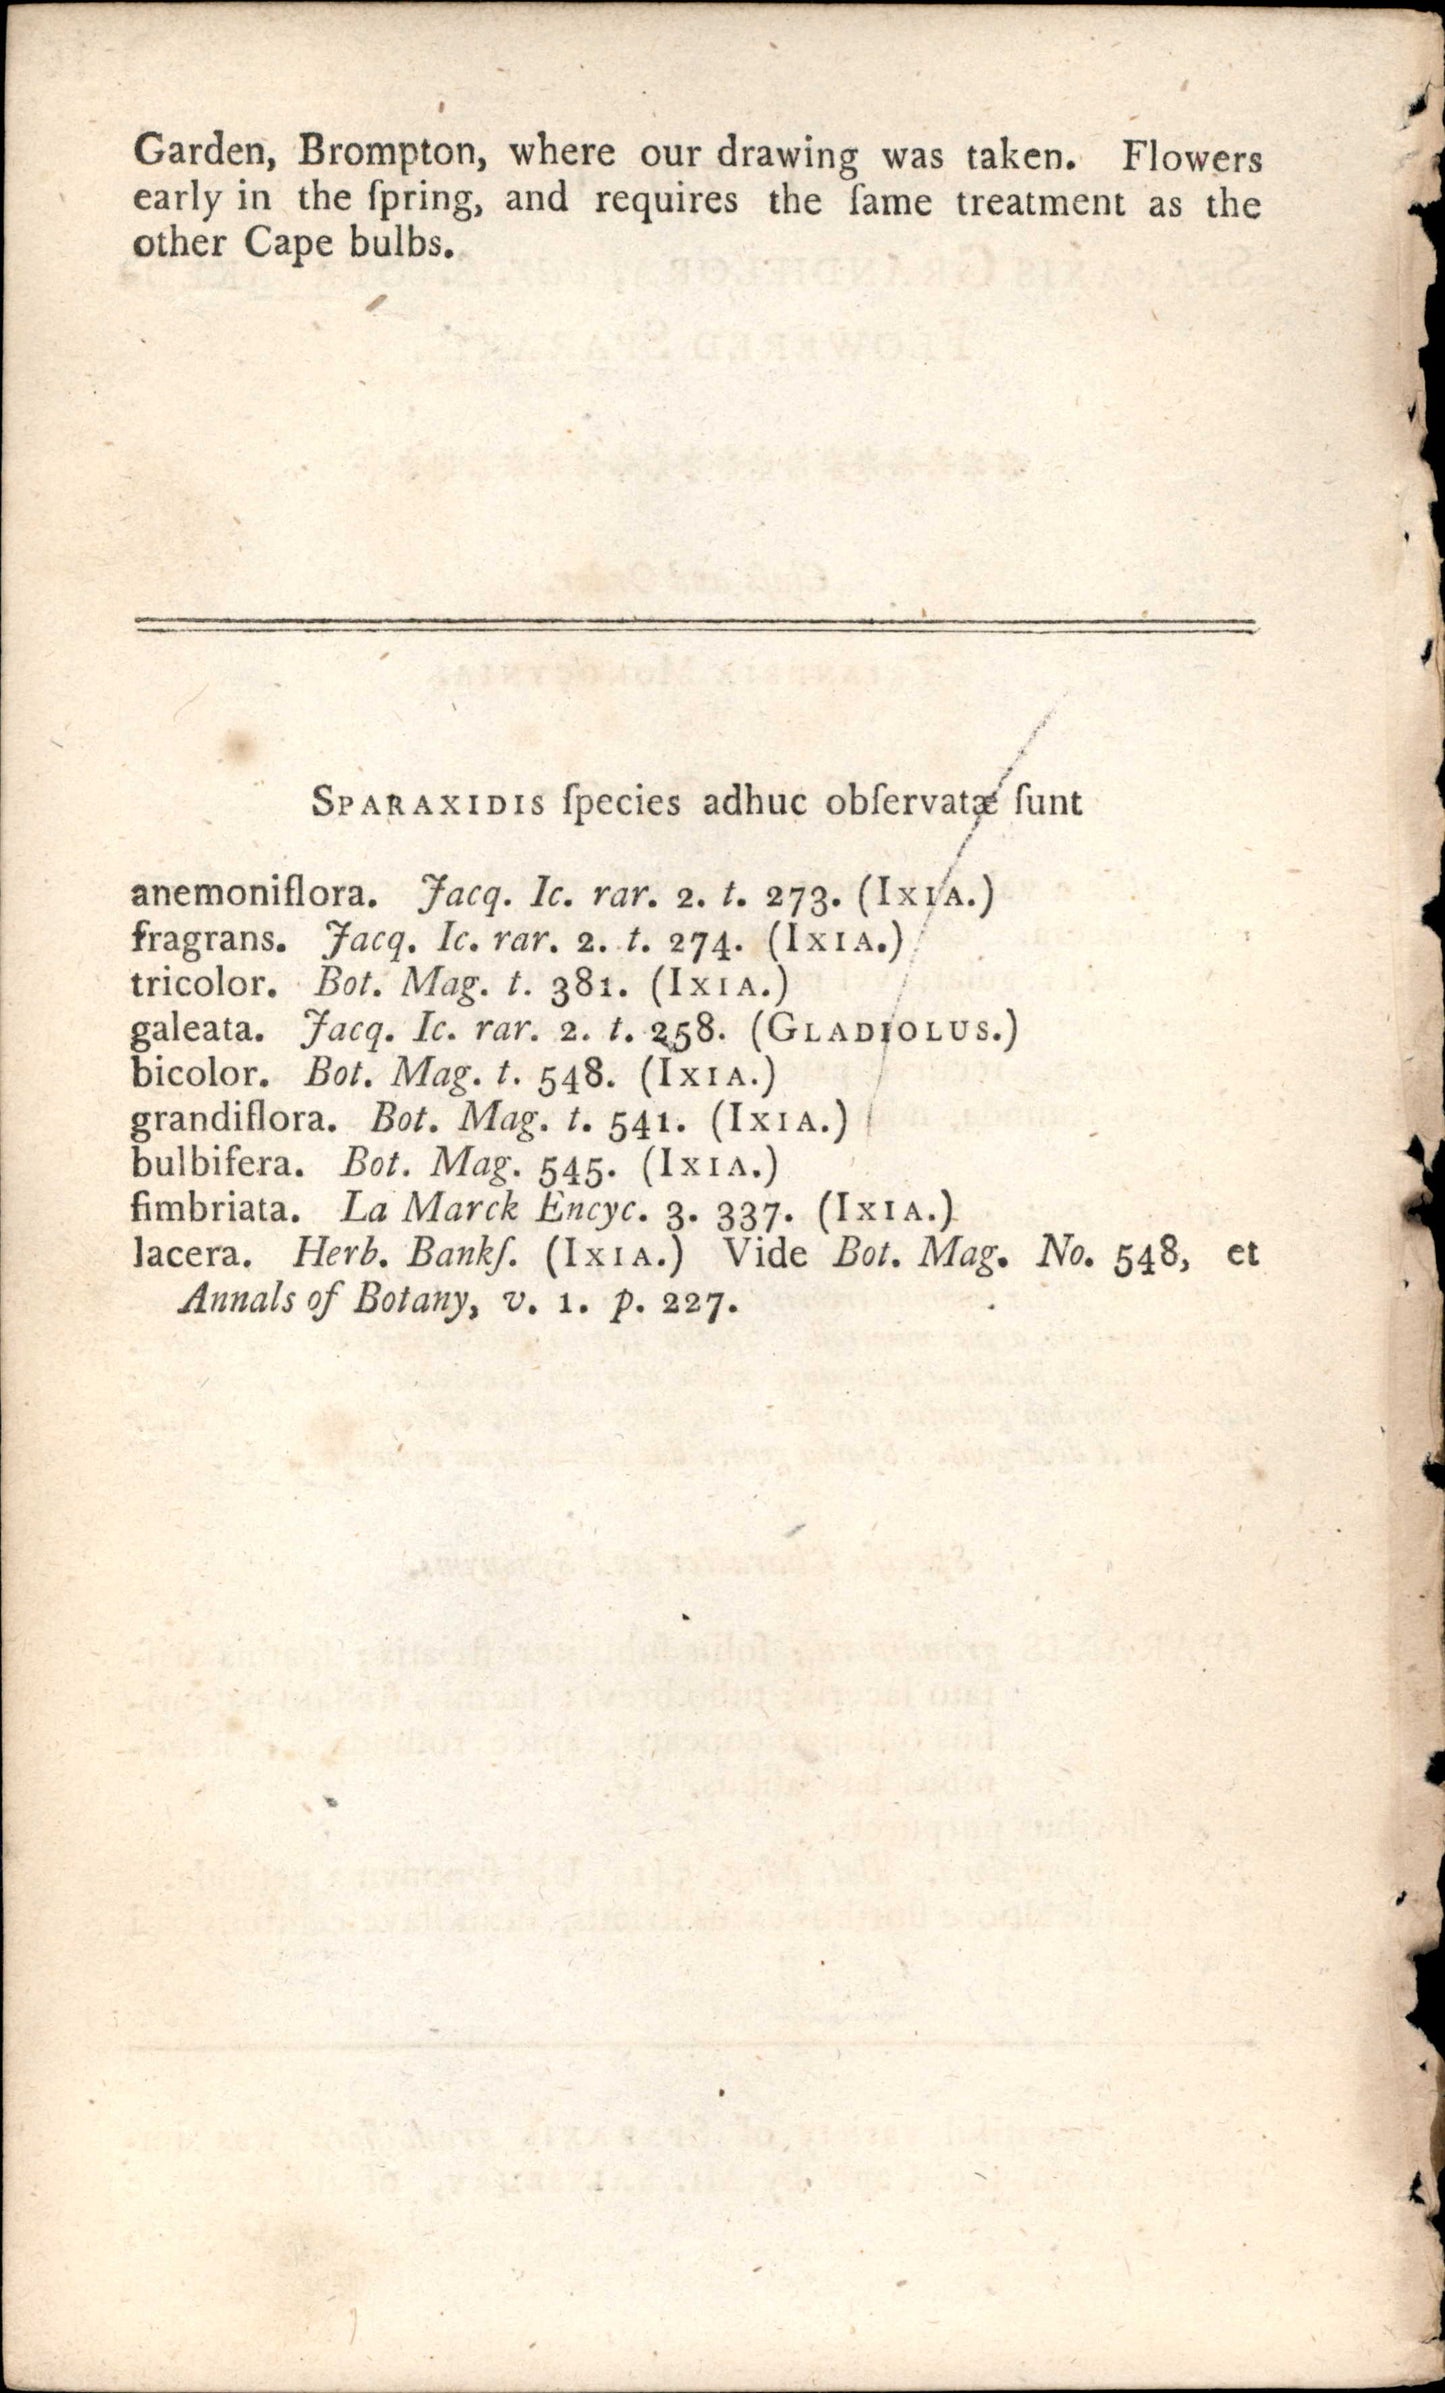 Garden, Brompton, where our drawing was taken. Flowers
early in the ſpring, and requires the ſame treatment as the
other Cape bulbs.
Sparaxidis ſpecies adhuc obſervatæ ſunt
anemoniflora. Jacq. Ic. rar. 2. t. 273. (Ixia.)
fragrans. Jacq. Ic. rar. 2. t. 274. (Ixia.)
tricolor. Bot. Mag. t. 381. (Ixia.)
galeata. Jacq. Ic. rar. 2. t. 258. (Gladiolus.)
bicolor. Bot. Mag. t. 548. (Ixia.)
grandiflora. Bot. Mag. t. 541. (Ixia.)
bulbifera. Bot. Mag. 545. (Ixia.)
fimbriata. La Marck Encyc. 3. 337. (Ixia.)
lacera. Herb. Bankſ. (Ixia.) Vide Bot. Mag. No. 548, et
Annals of Botany, v. 1. p. 227.